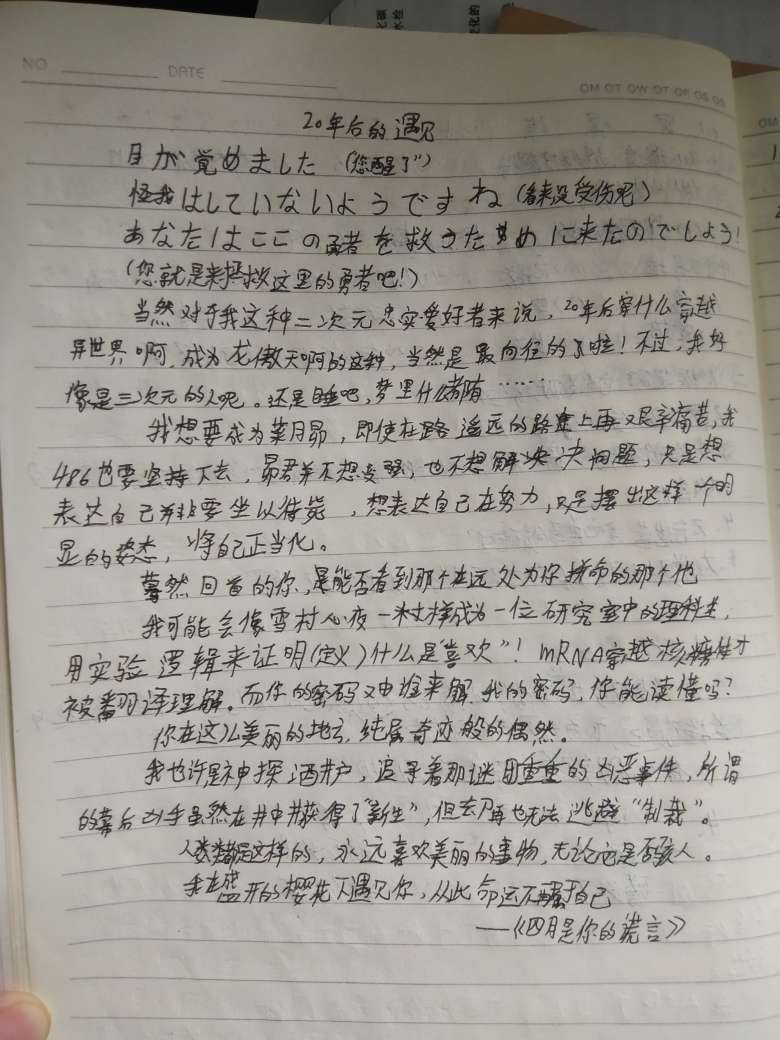 NO
DATE
MO TO WO TO FO SO SO
20年后的遇见
目が覚めました (您醒了")
怪我はしていないようですね (看来没受伤呢)
あなたはここの勇者を救うために来たのでしょう!
(您就是来拯救这里的勇者吧!)
当然对于我这种二次元忠实爱好者来说, 20年后穿什么穿越
异世界啊, 成为龙傲天啊的这种, 当然是最向往的了啦! 不过, 我好
像是三次元的人呢。还是睡吧, 梦里什么都有……
我想要成为菜月昴, 即使在路遥远的路途上再艰辛痛苦, 我
486也要坚持下去, 昴君并不想变强, 也不想解决决问题, 只是想
表达自己并非要坐以待毙, 想表达自己在努力, 只是摆出这样一个明
显的姿态, 将自己正当化。
蓦然回首的你, 是能否看到那个在远处为你拼命的那个他
我可能会像雪村心夜一样成为一位研究室中的理科生,
用实验逻辑来证明(定义)什么是"喜欢"! mRNA穿越核糖体才
被翻译理解。而你的密码又由谁来解, 我的密码, 你能读懂吗?
你在这么美丽的地方, 纯属奇迹般的偶然。
我也许是神探酒井户, 追寻着那谜团重重的凶恶事件, 所谓
的幕后凶手虽然在井中井获得了"新生", 但却再也无法逃避"制裁"。
人类都是这样的, 永远喜欢美丽的事物, 无论它是否骇人。
我在盛开的樱花下遇见你, 从此命运不属于自己
——《四月是你的谎言》